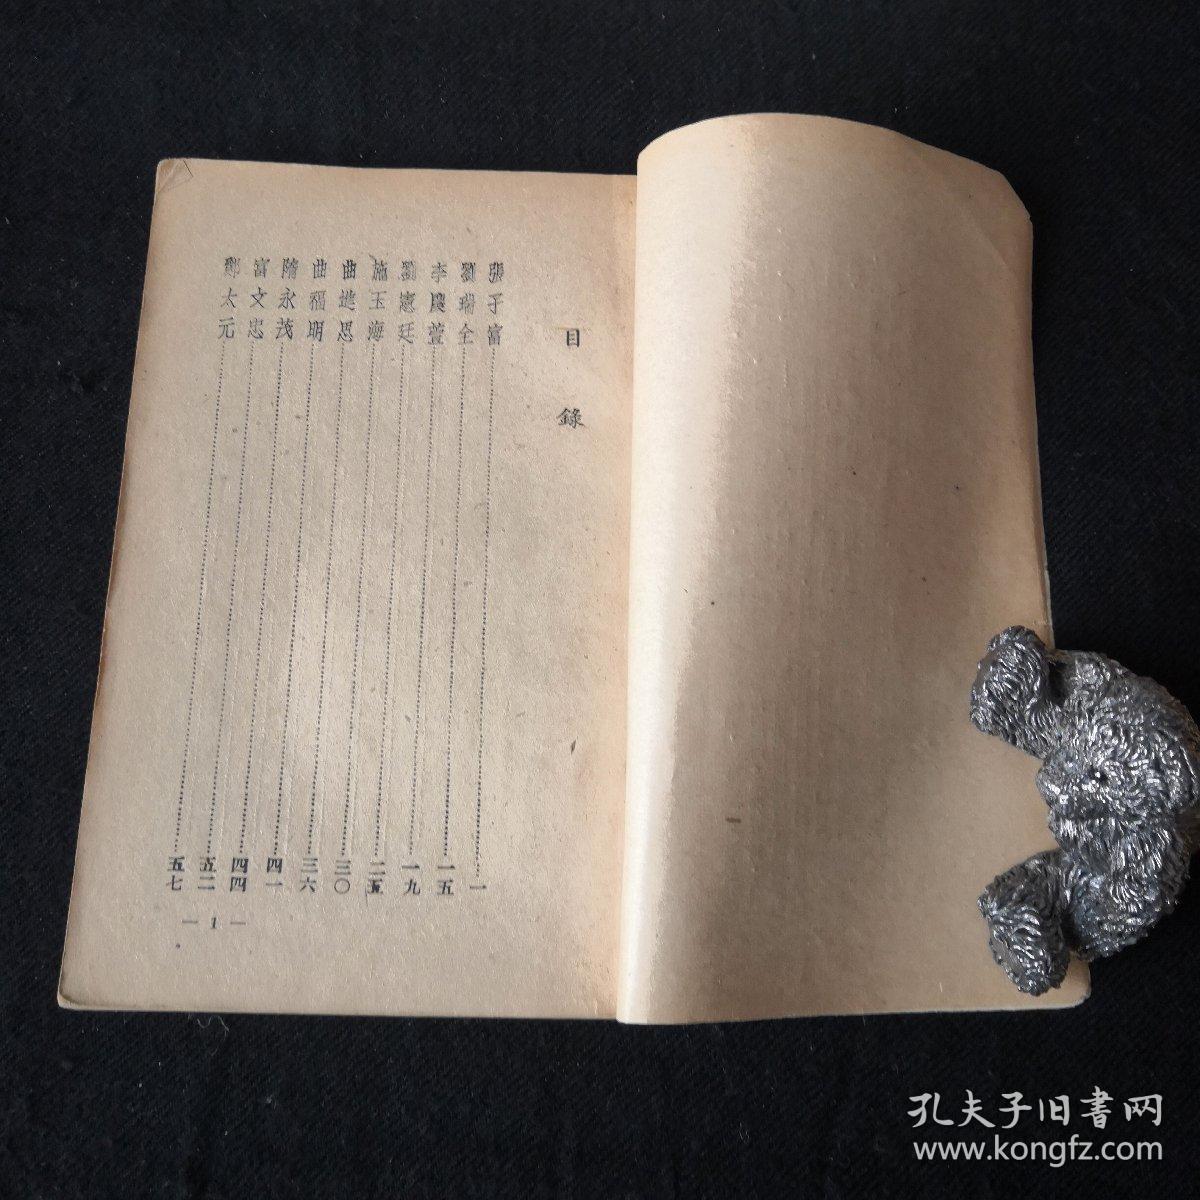 目錄
張子富……一
劉瑞全……一五
李慶萱……一九
劉憲廷……二五
施玉海……三〇
曲進思……三六
曲福明……四一
隋永茂……四四
富文忠……五二
鄭太元……五七
— 1 —
孔夫子旧書网
www.kongfz.com